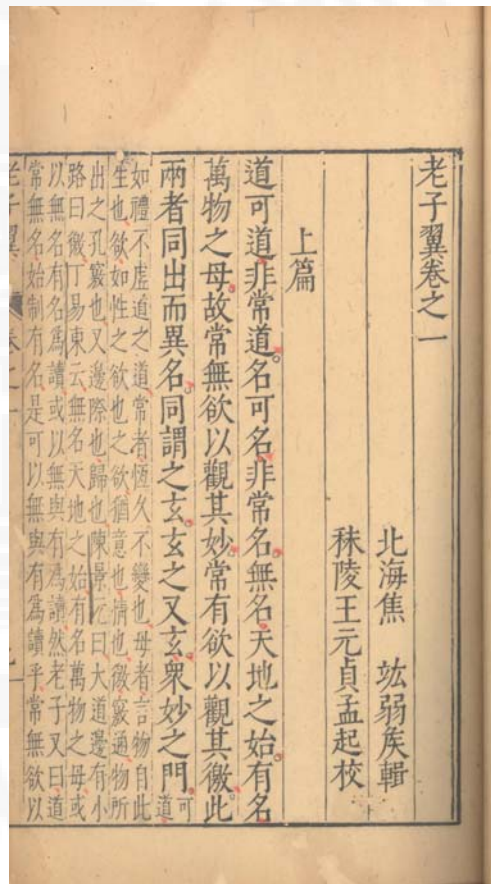 老子翼卷之一
北海焦　竑弱矦輯
秣陵王元貞孟起校
上篇
道可道非常道名可名非常名無名天地之始有名
萬物之母故常無欲以觀其妙常有欲以觀其徼此
兩者同出而異名同謂之玄玄之又玄衆妙之門可
道
如禮不虛道之道常者恆久不變也母者言物自此
生也欲如性之欲也之欲猶意也情也徼竅通物所
出之孔竅也又邊際也歸也陳景元曰大道邊有小
路曰徼丁易東云無名天地之始有名萬物之母或
以無名有名爲讀或以無與有爲讀然老子又曰道
常無名始制有名是可以無與有爲讀乎常無欲以
老子翼　卷之一